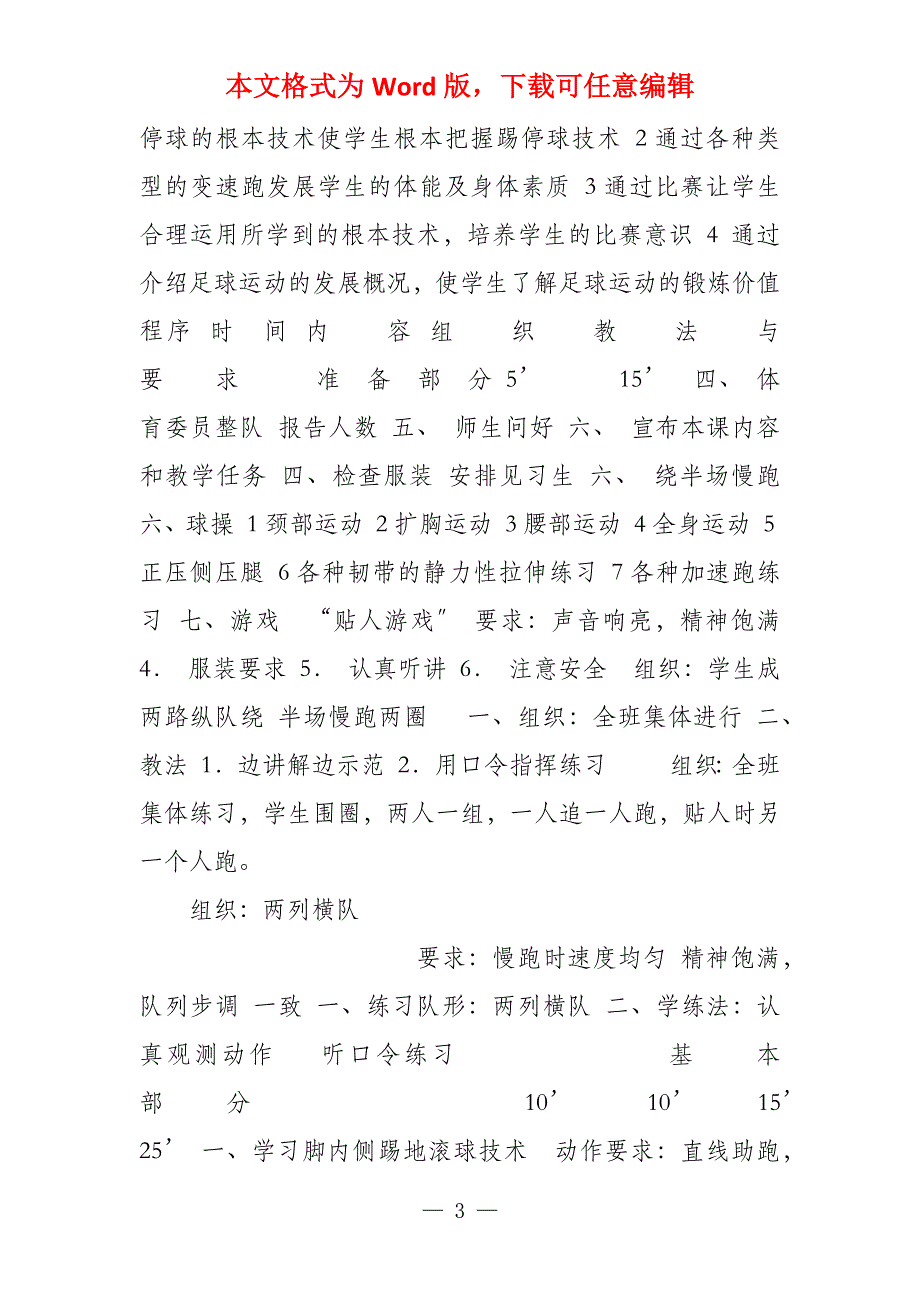 本文格式为 Word 版，下载可任意编辑
停球的根本技术使学生根本把握踢停球技术 2 通过各种类
型的变速跑发展学生的体能及身体素质 3 通过比赛让学生
合理运用所学到的根本技术，培养学生的比赛意识 4 通过
介绍足球运动的发展概况，使学生了解足球运动的锻炼价值
程序 时 间 内 容 组 织 教 法 与
要 求 准 备 部 分 5’ 15’ 四、 体
育委员整队 报告人数 五、 师生问好 六、 宣布本课内容
和教学任务 四、检查服装 安排见习生 六、 绕半场慢跑
六、球操 1 颈部运动 2 扩胸运动 3 腰部运动 4 全身运动 5
正压侧压腿 6 各种韧带的静力性拉伸练习 7 各种加速跑练
习 七、游戏 “贴人游戏〞 要求：声音响亮，精神饱满
4． 服装要求 5． 认真听讲 6． 注意安全 组织：学生成
两路纵队绕 半场慢跑两圈 一、组织：全班集体进行 二、
教法 1．边讲解边示范 2．用口令指挥练习 组织：全班
集体练习，学生围圈，两人一组，一人追一人跑，贴人时另
一个人跑。
组织：两列横队
要求：慢跑时速度均匀 精神饱满，
队列步调 一致 一、练习队形：两列横队 二、学练法：认
真观测动作 听口令练习 基 本
部 分 10’ 10’ 15’
25’ 一、学习脚内侧踢地滚球技术 动作要求：直线助跑，
— 3 —